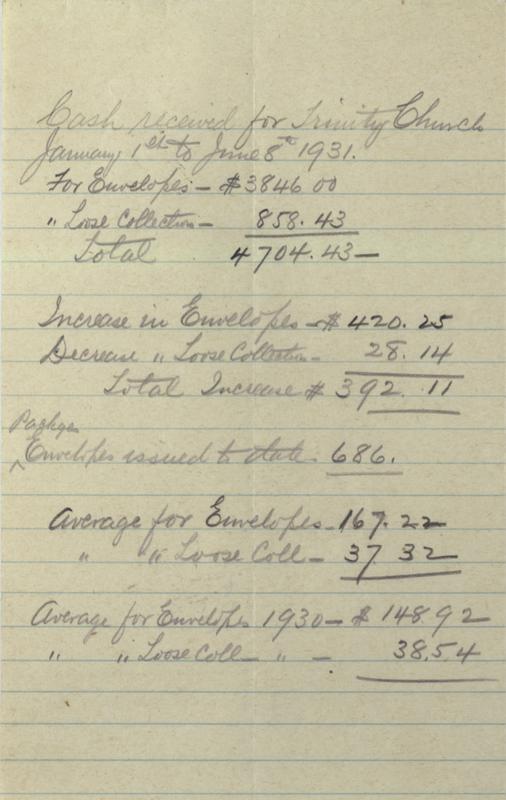 Cash received for Trinity Church
January 1st to June 8th 1931.
For Envelopes — $3846 00
" Loose Collection — 858.43
Total 4704.43 —
Increase in Envelopes — $ 420.25
Decrease " Loose Collection — 28.14
Total Increase $ 392.11
Envelopes issued to date. 686.
Average for Envelopes — 167.22
" " Loose Coll — 37 32
Average for Envelopes 1930 — $ 148.92
" " Loose Coll — " — 38.54